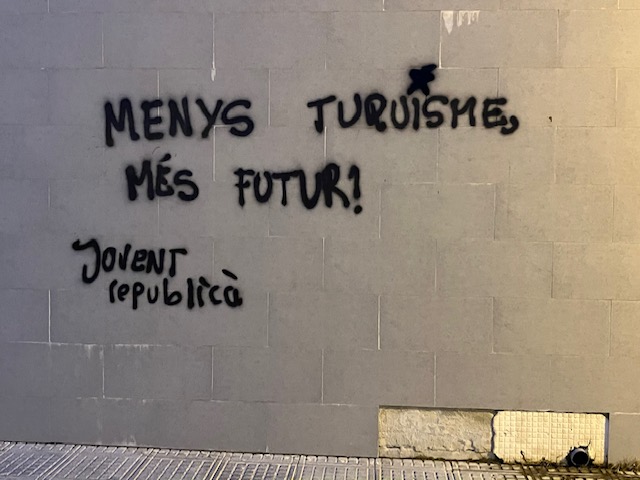 MENYS TURISME,
MÉS FUTUR!
Jovent
republicà